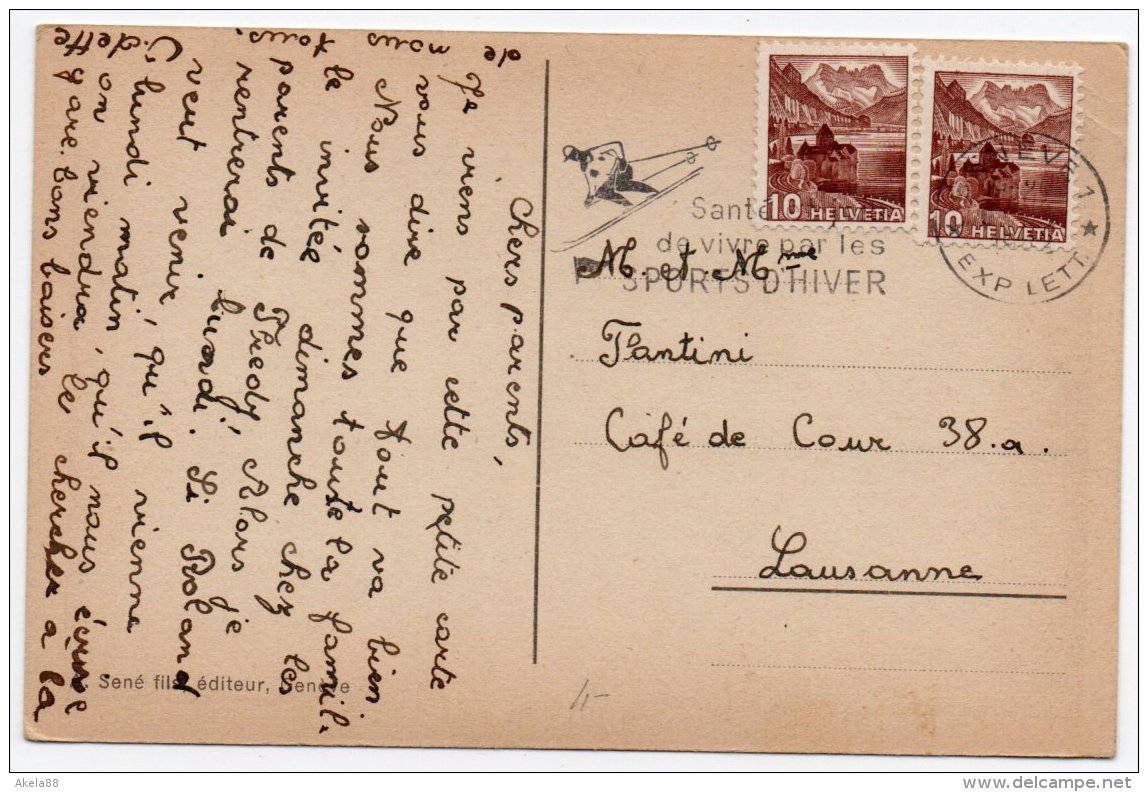 Chers parents,
Je viens par cette petite carte
vous dire que tout va bien
Nous sommes toute la famil-
le invitée dimanche chez les
parents de Fredy, Alors je
rentrerai lundi. Si Roland
veut venir, qu'il vienne
lundi matin, qu'il nous écrive
on viendra le chercher a la
gare. bons baisers
de nous tous.
Odette
Sené fils, éditeur, Genève
Santé
de vivre par les
SPORTS D'HIVER
10 HELVETIA
10 HELVETIA
GENÈVE 1
EXP. LETT.
M. et Mme
Fantini
Café de Cour 38.a.
Lausanne
Akela88
www.delcampe.net